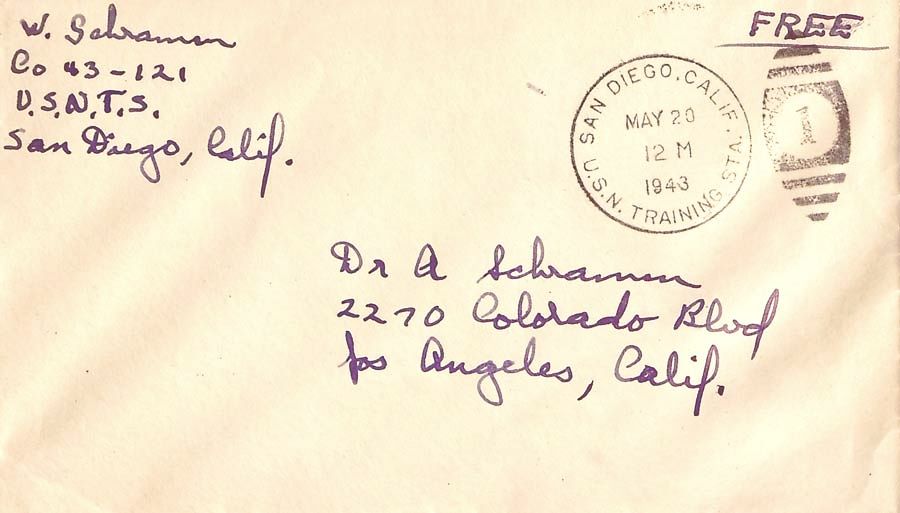 W. Schramm
Co 43-121
U.S.N.T.S.
San Diego, Calif.
FREE
SAN DIEGO, CALIF.
MAY 20
12 M
1943
U.S.N. TRAINING STA.
1
Dr A Schramm
2270 Colorado Blvd
Los Angeles, Calif.